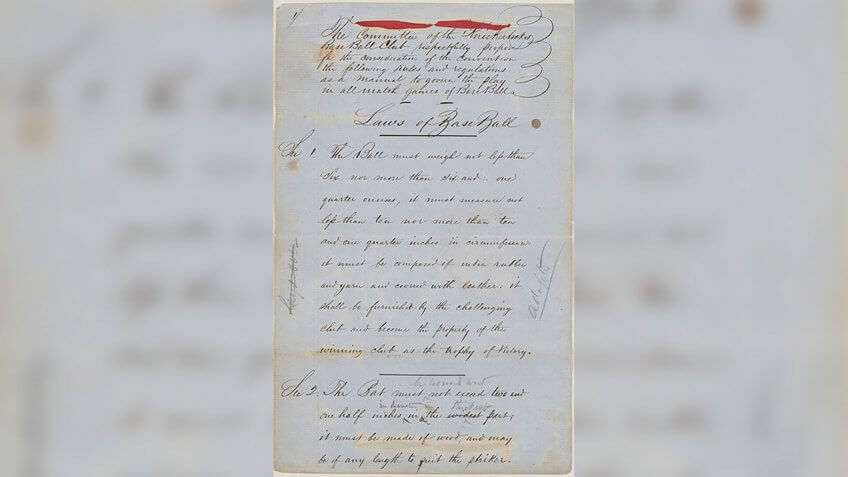 The Committee of the Knickerbocker
Base Ball Club respectfully propose
for the consideration of the convention
the following rules and regulations
as a manual to govern the play
in all match games of Base Ball.
Laws of Base Ball
Sec 1. The Ball must weigh not less than
Six, nor more than six and one
quarter ounces, it must measure not
less than ten nor more than ten
and one quarter inches in circumference
it must be composed of india rubber
and yarn and covered with leather. it
shall be furnished by the challenging
club and become the property of the
winning club as the trophy of Victory.
be round and
Sec 2. The Bat must not exceed two and
in diameter thickest
one half inches in the widest part,
it must be made of wood, and may
be of any length to suit the striker.